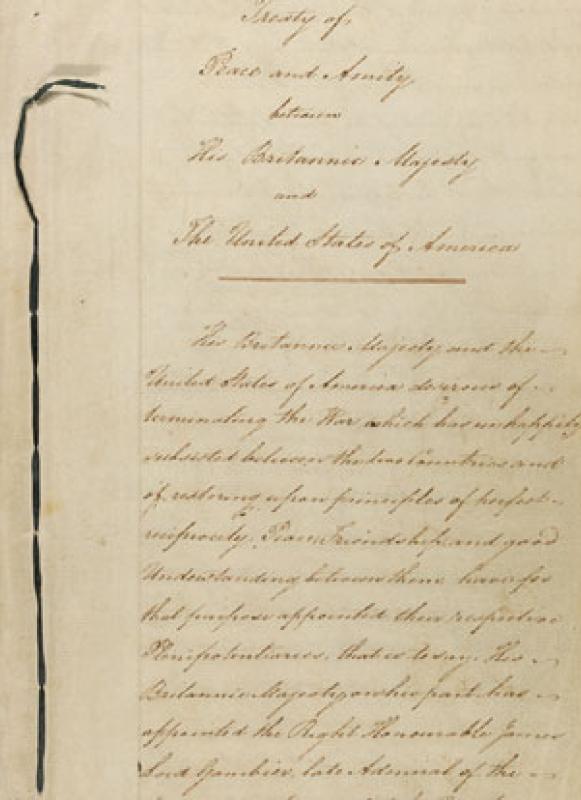 Treaty of
Peace and Amity
between
His Britannic Majesty
and
The United States of America
His Britannic Majesty and the
United States of America desirous of
terminating the War which has unhappily
subsisted between the two Countries and
of restoring upon principles of perfect
reciprocity, Peace, Friendship, and good
Understanding between them, have for
that purpose appointed their respective
Plenipotentiaries, that is to say, His
Britannic Majesty on his part has
appointed the Right Honourable James
Lord Gambier, late Admiral of the